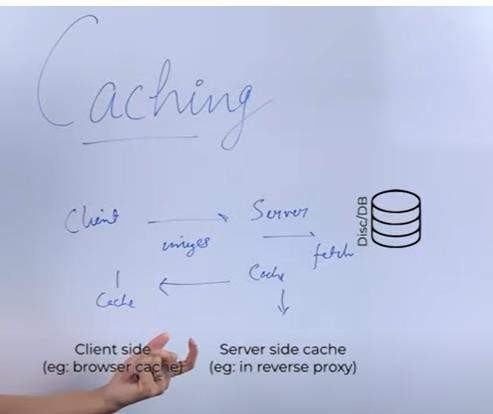 Caching
Client
Server
images
fetch
Disc/DB
Cache
Cache
Client side
(eg: browser cache)
Server side cache
(eg: in reverse proxy)